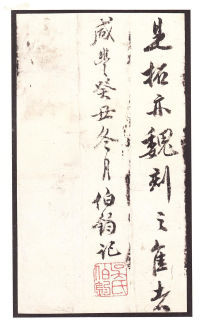 是拓亦魏刻之隹者
咸豐癸丑冬月伯鈞記